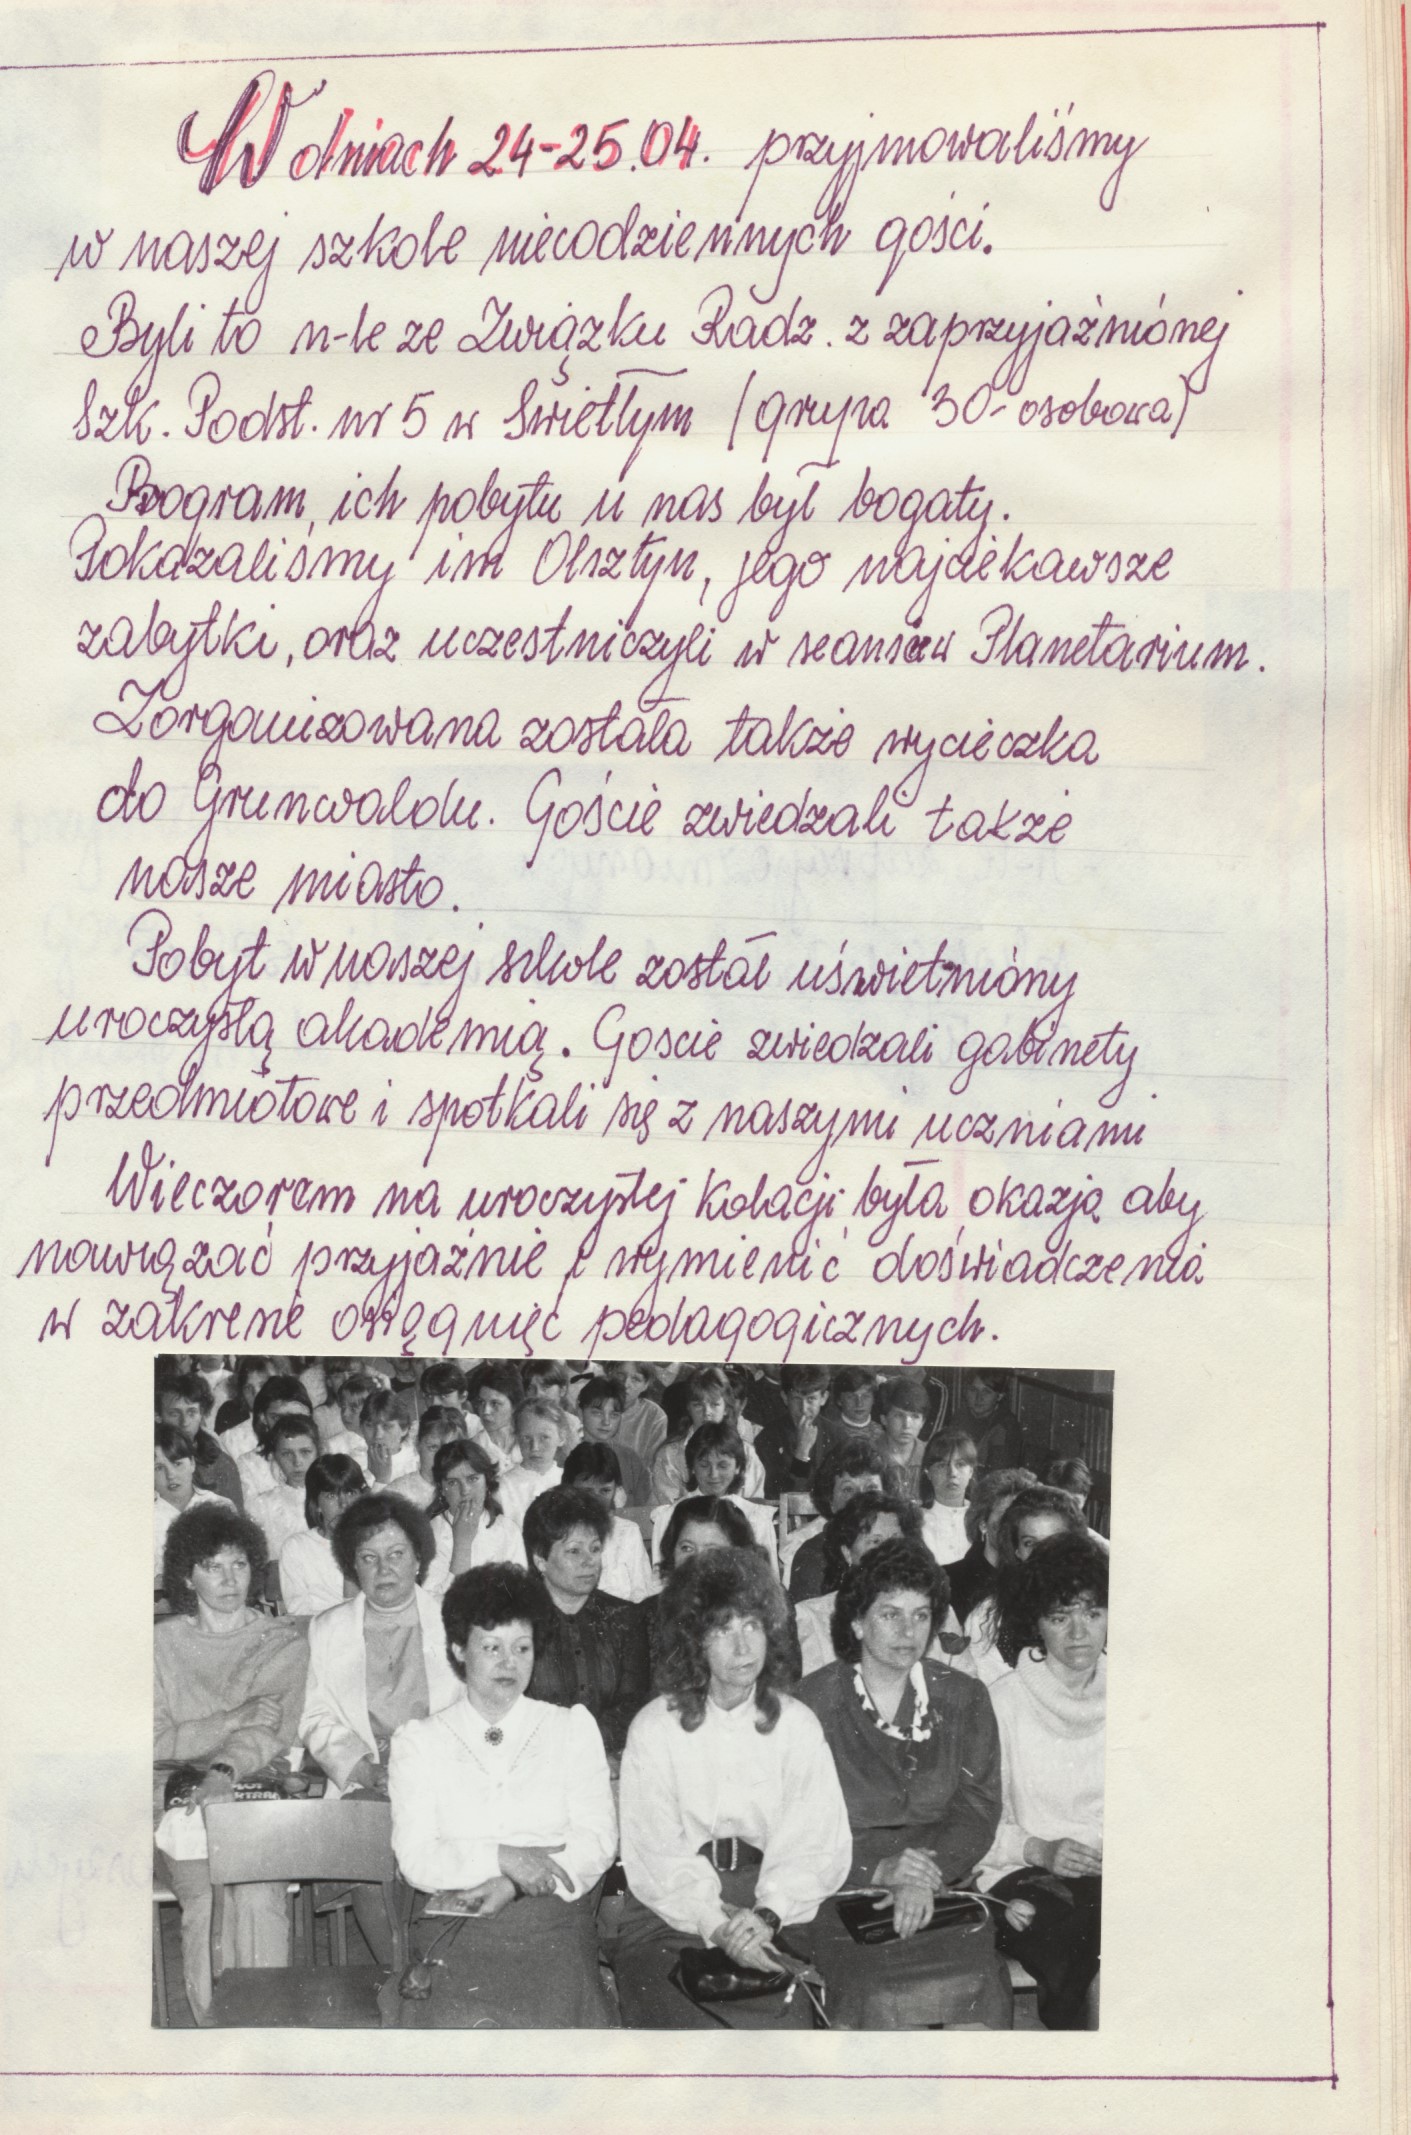 W dniach 24-25.04. przyjmowaliśmy
w naszej szkole niecodziennych gości.
Byli to n-le ze Związku Radz. z zaprzyjaźniónej
Szk. Podst. nr 5 w Swietłym (grupa 30-osobowa)
Program, ich pobytu u nas był bogaty.
Pokazaliśmy im Olsztyn, jego najciekawsze
zabytki, oraz uczestniczyli w seansie w Planetarium.
Zorganizowana została także wycieczka
do Grunwaldu. Goście zwiedzali także
nasze miasto.
Pobyt w naszej szkole został uświetnióny
uroczystą akademią. Goscie zwiedzali gabinety
przedmiotowe i spotkali się z naszymi uczniami
Wieczorem na uroczystej kolacji była okazja aby
nawiązać przyjaźnie i wymienić doświadczenia
w zakresie osiągnięć pedagogicznych.